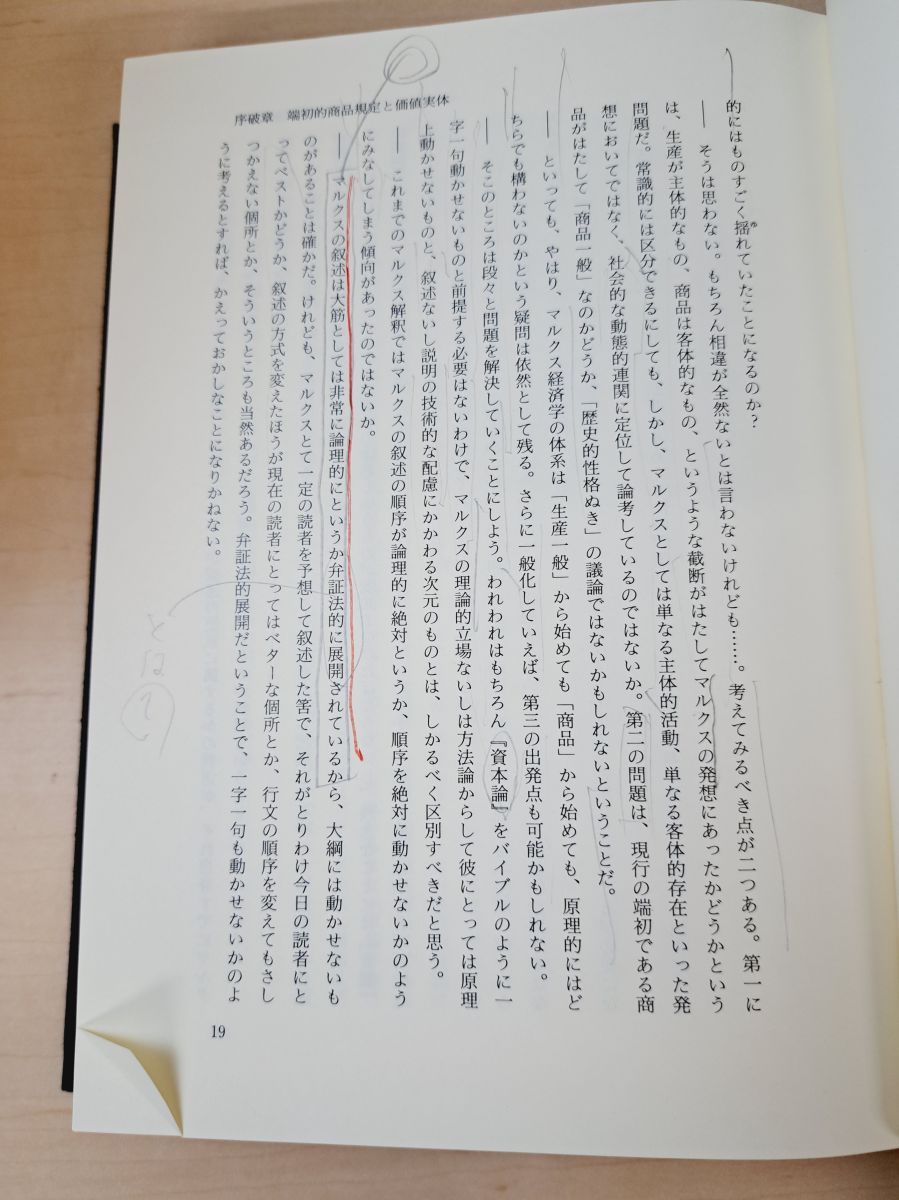 序破章　端初的商品規定と価値実体
的にはものすごく揺れていたことになるのか？
――　そうは思わない。もちろん相違が全然ないとは言わないけれども……。考えてみるべき点が二つある。第一に
は、生産が主体的なもの、商品は客体的なもの、というような截断がはたしてマルクスの発想にあったかどうかという
問題だ。常識的には区分できるにしても、しかし、マルクスとしては単なる主体的活動、単なる客体的存在といった発
想においてではなく、社会的な動態的連関に定位して論考しているのではないか。第二の問題は、現行の端初である商
品がはたして「商品一般」なのかどうか、「歴史的性格ぬき」の議論ではないかもしれないということだ。
――　といっても、やはり、マルクス経済学の体系は「生産一般」から始めても「商品」から始めても、原理的にはど
ちらでも構わないのかという疑問は依然として残る。さらに一般化していえば、第三の出発点も可能かもしれない。
――　そこのところは段々と問題を解決していくことにしよう。われわれはもちろん『資本論』をバイブルのように一
字一句動かせないものと前提する必要はないわけで、マルクスの理論的立場ないしは方法論からして彼にとっては原理
上動かせないものと、叙述ないし説明の技術的な配慮にかかわる次元のものとは、しかるべく区別すべきだと思う。
――　これまでのマルクス解釈ではマルクスの叙述の順序が論理的に絶対というか、順序を絶対に動かせないかのよう
にみなしてしまう傾向があったのではないか。
――　マルクスの叙述は大筋としては非常に論理的にというか弁証法的に展開されているから、大綱には動かせないも
のがあることは確かだ。けれども、マルクスとて一定の読者を予想して叙述した筈で、それがとりわけ今日の読者にと
ってベストかどうか、叙述の方式を変えたほうが現在の読者にとってはベターな個所とか、行文の順序を変えてもさし
つかえない個所とか、そういうところも当然あるだろう。弁証法的展開だということで、一字一句も動かせないかのよ
うに考えるとすれば、かえっておかしなことになりかねない。
とは？
19